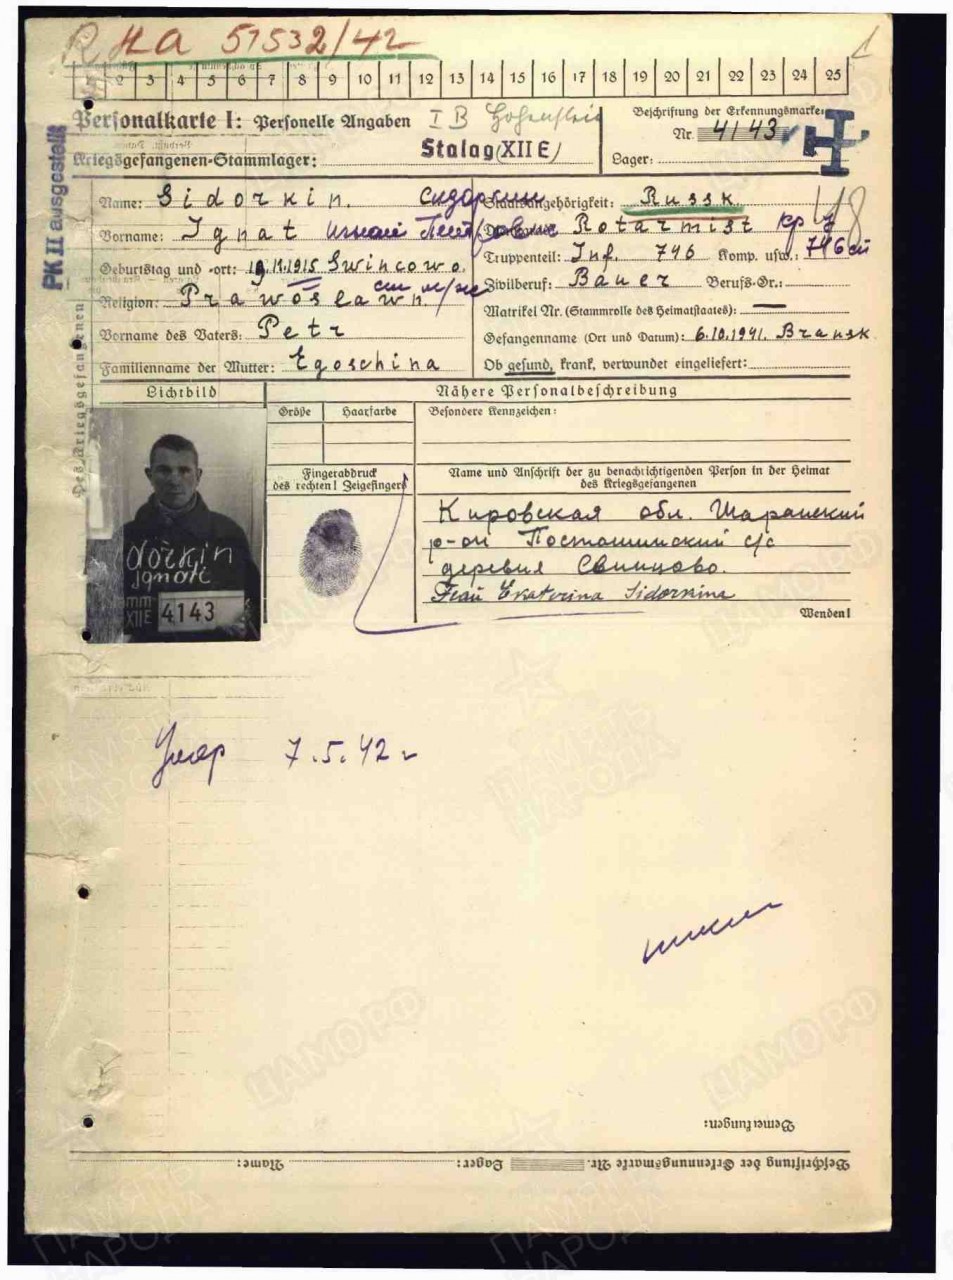 НА 51532/42
1
1 2 3 4 5 6 7 8 9 10 11 12 13 14 15 16 17 18 19 20 21 22 23 24 25
Personalkarte I: Personelle Angaben
I B Hohenstein
Beschriftung der Erkennungsmarke
Nr. 4143
Kriegsgefangenen-Stammlager: Stalag (XII E)
Lager:
PK II ausgestellt
Des Kriegsgefangenen
Name: Sidorkin. Сидоркин
Staatsangehörigkeit: Russk.
Vorname: Ignat Игнат Петрович
Rotarmist кр-ц
Geburtstag und -ort: 19.11.1915 Swincowo.
Truppenteil: Inf. 746 Komp. usw.: 746 сп
Religion: Prawoslawn.
Zivilberuf: Bauer Berufs-Gr.:
Matrikel Nr. (Stammrolle des Heimatstaates): —
Vorname des Vaters: Petr
Gefangenname (Ort und Datum): 6.10.1941. Bransk
Familienname der Mutter: Egoschina
Ob gesund, krank, verwundet eingeliefert:
Lichtbild
Nähere Personalbeschreibung
Größe Haarfarbe Besondere Kennzeichen:
Fingerabdruck
des rechten! Zeigefingers
Name und Anschrift der zu benachrichtigenden Person in der Heimat
des Kriegsgefangenen
Кировская обл. Шарангский
р-он Постошинский с/с
деревня Свинцово.
Frau Ekaterina Sidorkina
Wenden!
dorkin
Ignat
mm
XII E 4143
Умер 7.5.42 г
Bemerkungen:
Name: Lager: Beschriftung der Erkennungsmarke Nr.
ПАМЯТЬ НАРОДА
ЦАМО РФ